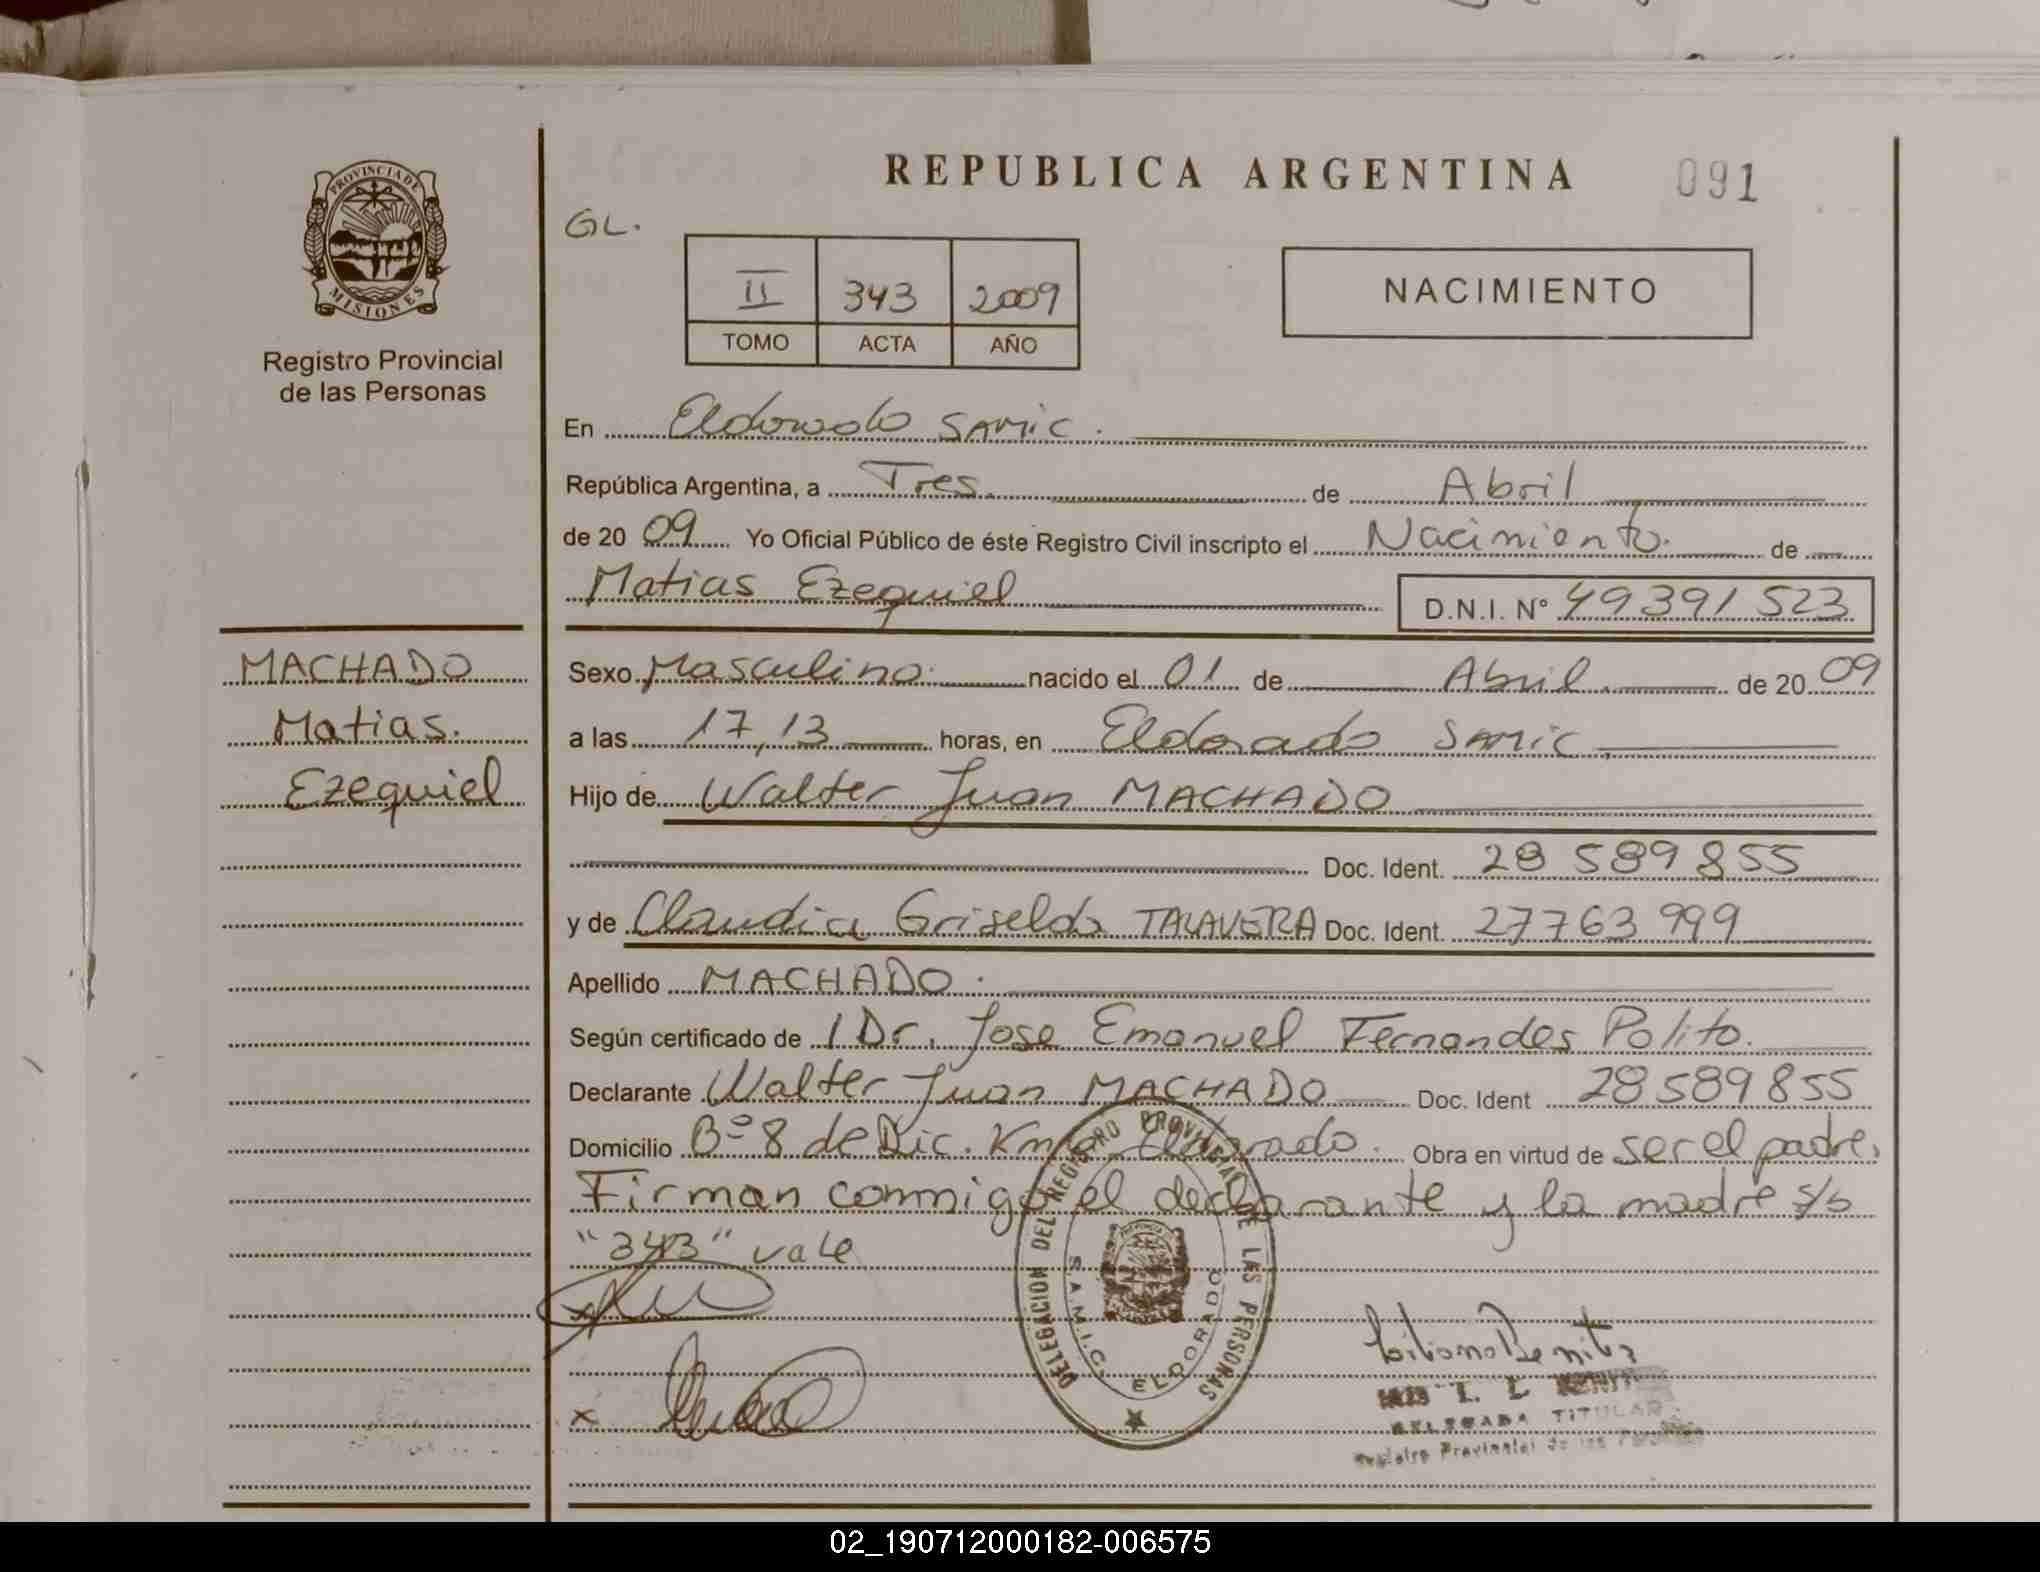 REPUBLICA ARGENTINA
091
PROVINCIA DE
MISIONES
Registro Provincial
de las Personas
GL.
II 343 2009
TOMO ACTA AÑO
NACIMIENTO
En Eldorado SAMIC.
República Argentina, a Tres. de Abril
de 20 09 Yo Oficial Público de éste Registro Civil inscripto el Nacimiento. de
Matias Ezequiel D.N.I. Nº 49391523
MACHADO
Matias.
Ezequiel
Sexo Masculino. nacido el 01 de Abril. de 20 09
a las 17,13 horas, en Eldorado SAMIC
Hijo de Walter Juan MACHADO
Doc. Ident. 28 589 855
y de Claudia Griselda TALAVERA Doc. Ident. 27763 999
Apellido MACHADO.
Según certificado de l Dr. Jose Emanuel Fernandes Polito.
Declarante Walter Juan MACHADO Doc. Ident 28589855
Domicilio Bº 8 de Dic. Eldorado. Obra en virtud de ser el padre.
Firman conmigo el declarante y la madre s/b
"343" vale
DELEGACION DEL REGISTRO PROVINCIAL DE LAS PERSONAS
S.A.M.I.C. ELDORADO
x
x
DELEGADA TITULAR
Registro Provincial de las Personas
02_190712000182-006575